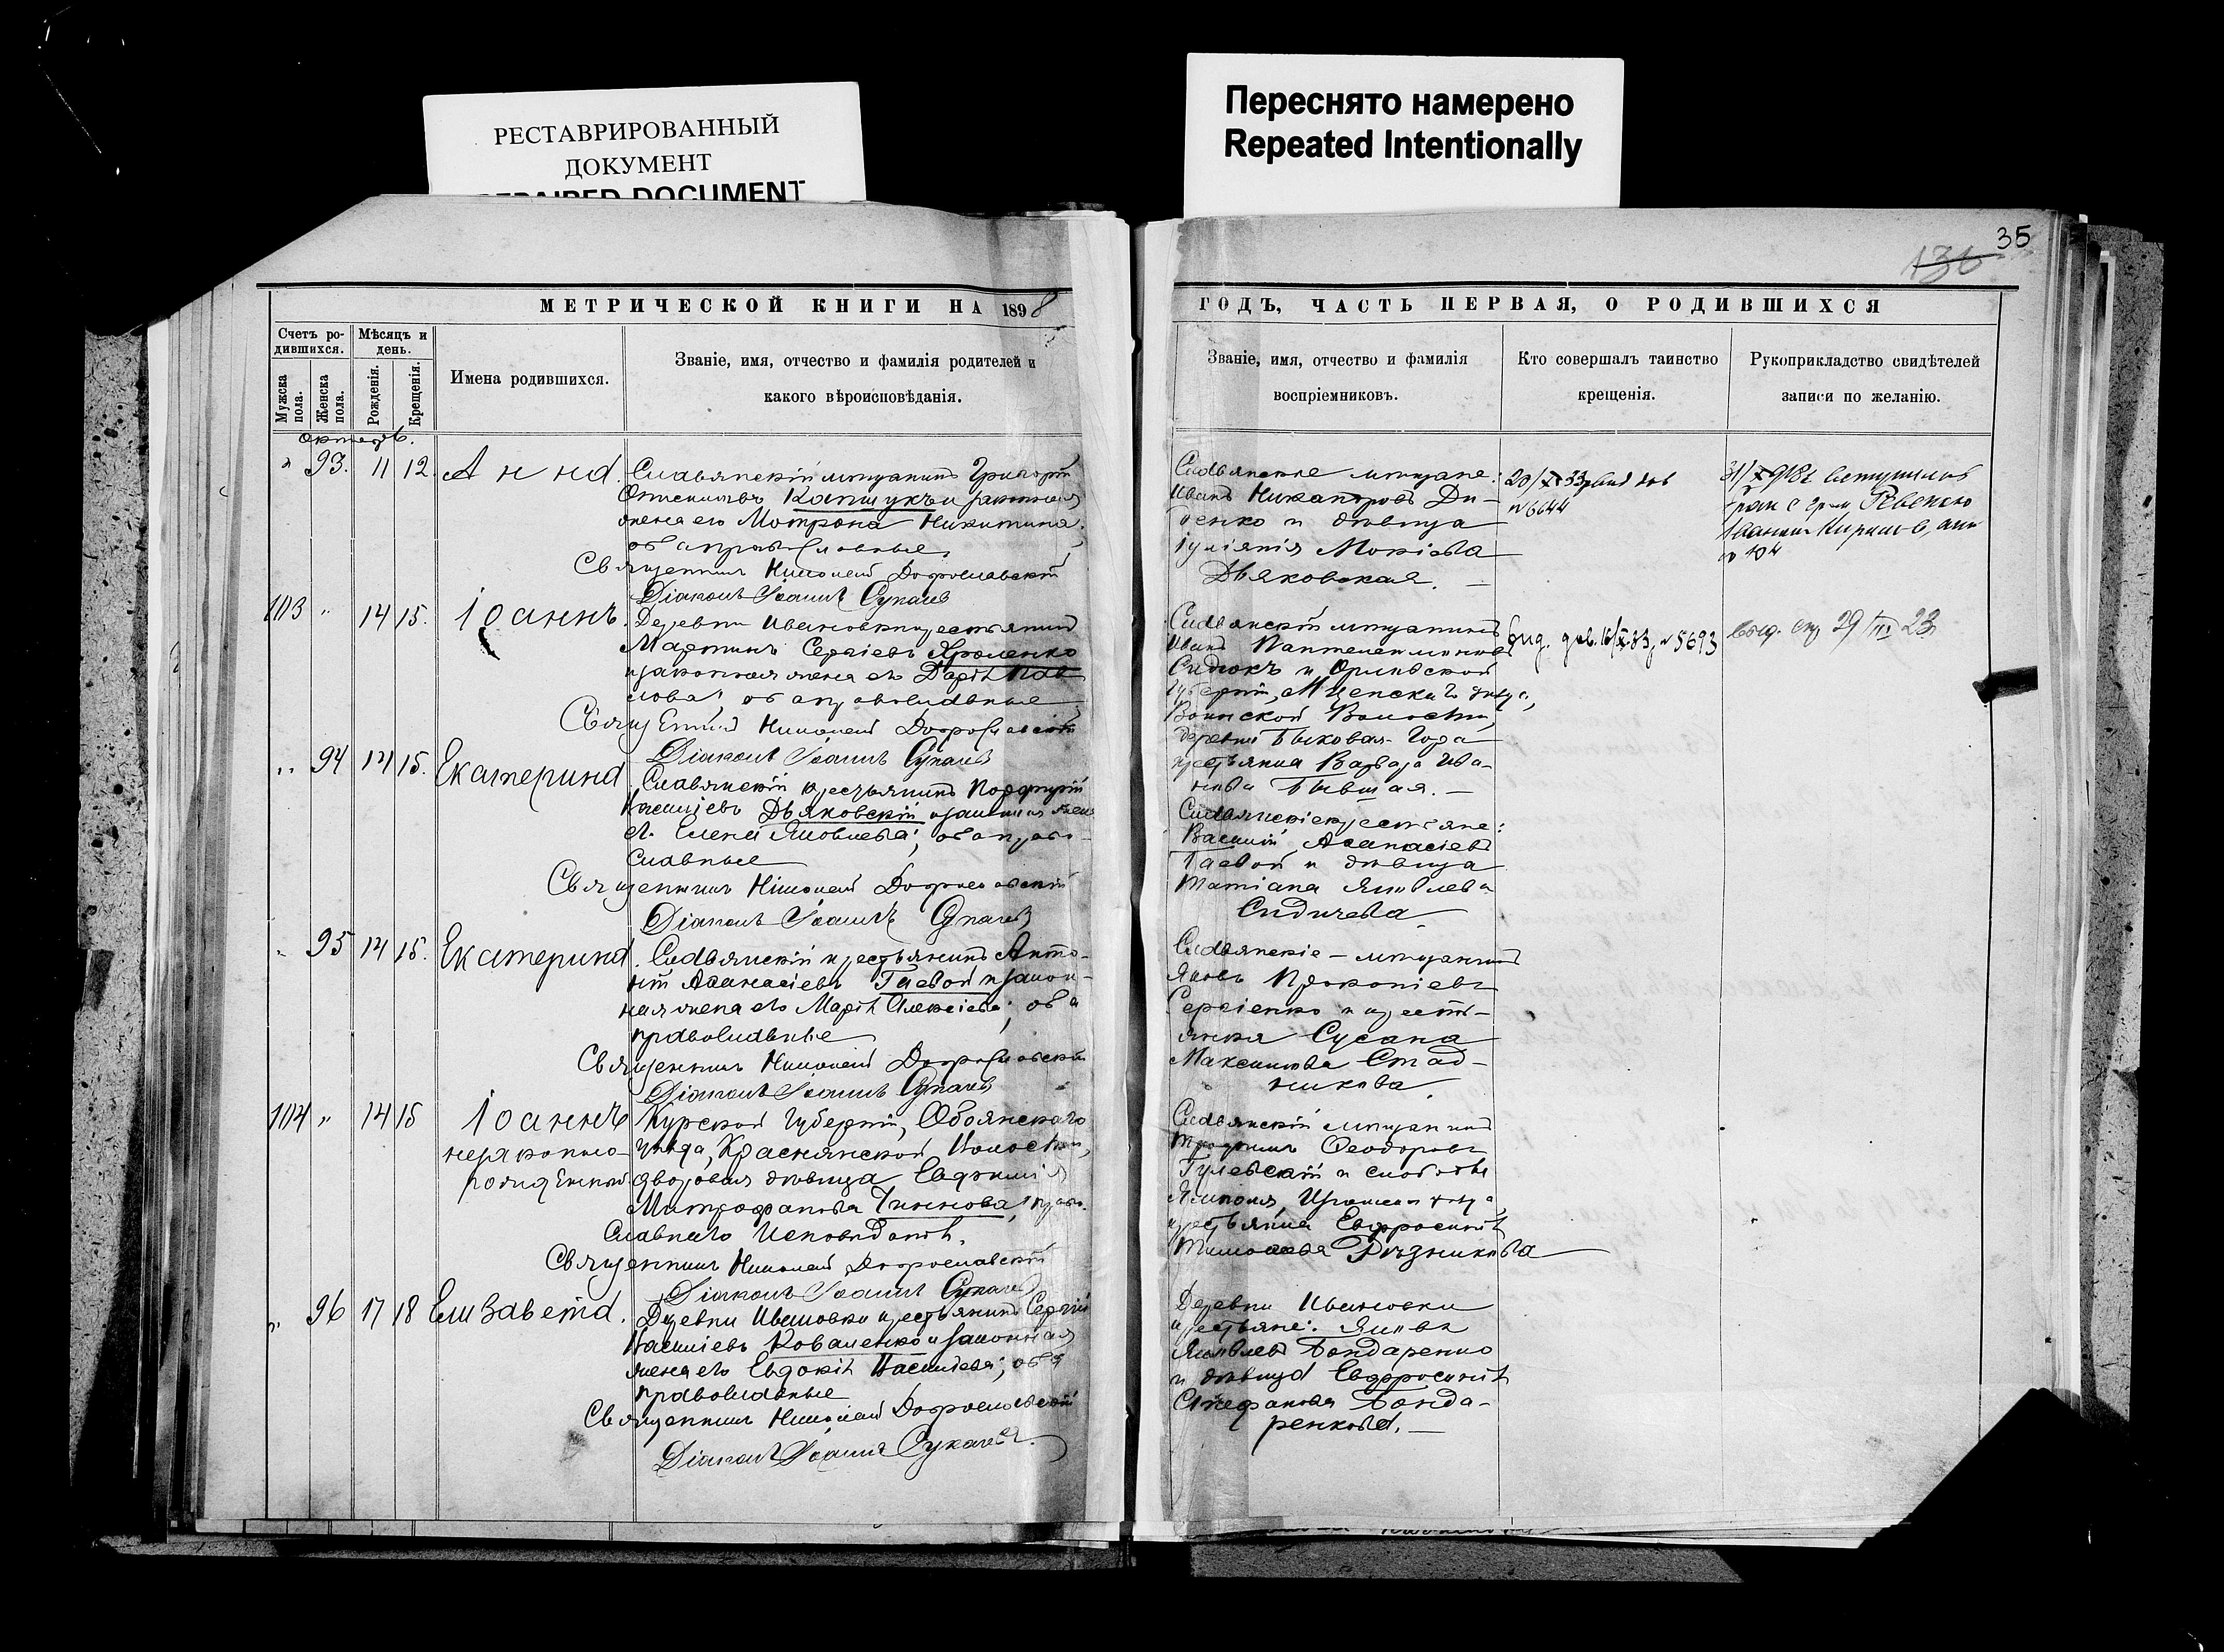 РЕСТАВРИРОВАННЫЙ
ДОКУМЕНТ
REPAIRED DOCUMENT
Переснято намерено
Repeated Intentionally
35
136
МЕТРИЧЕСКОЙ КНИГИ НА 1898
ГОДЪ, ЧАСТЬ ПЕРВАЯ, О РОДИВШИХСЯ
Счетъ ро-
дившихся.
Мужска
пола.
Женска
пола.
Мѣсяцъ и
день.
Рожденія.
Крещенія.
Имена родившихся.
Званіе, имя, отчество и фамилія родителей и
какого вѣроисповѣданія.
Званіе, имя, отчество и фамилія
воспріемниковъ.
Кто совершалъ таинство
крещенія.
Рукоприкладство свидѣтелей
записи по желанію.
93. 11 12. Анна.
Славянскій мѣщанинъ Григорій
жена его Матрона Никитина;
оба православные.
Священникъ Николай Доброславскій
Діаконъ Іоаннъ Сукачевъ
Славянские мѣщане:
Иванъ Никаноровъ Ди-
денко и дѣвица
Іуліанія Мокіева
Дьяковская.
№ 6644
103 " 14 15. Іоаннъ.
Деревни Ивановки крестьянинъ
Мартинъ Сергіевъ Яроленко
и законная жена его Дарія Пав-
лова; оба православные
Священникъ Николай Доброславскій
Діаконъ Іоаннъ Сукачевъ
Славянскій мѣщанинъ
Иванъ Пантелеимоновъ
Сидюкъ и Орловской
губерніи, Мценскаго уѣзда,
Воинской Волости,
деревни Быковая-Гора
крестьянка Варвара Ива-
нова Бывшая.
№ 5693
29/III 23
" 94 14 15. Екатерина
Славянскій крестьянинъ Порфирій
Василіевъ Дьяковскій и законная жена
его Елена Яковлева; оба право-
славные
Священникъ Николай Доброславскій
Діаконъ Іоаннъ Сукачевъ
Славянскіе крестьяне:
Василій Аѳанасіевъ
Гаевой и дѣвица
Татіана Яковлева
Сидичева
" 95 14 15. Екатерина.
Славянскій крестьянинъ Анто-
ній Аѳанасіевъ Гаевой и закон-
ная жена его Марія Алексіева; оба
православные
Священникъ Николай Доброславскій
Діаконъ Іоаннъ Сукачевъ
Славянскіе – мѣщанинъ
Яковъ Прокопіевъ
Сергіенко и кресть-
янка Сусана
Максимова Стад-
никова.
104 " 14 15 Іоаннъ
незаконно-
рожденный
Курской Губерніи, Обоянскаго
уѣзда, Краснянской Волости,
дворовая дѣвица Евдокія
Митрофанова Чиннова, право-
славнаго Исповѣданія.
Священникъ Николай Доброславскій
Діаконъ Іоаннъ Сукачевъ
Славянскій мѣщанинъ
Трофимъ Ѳеодоровъ
Гулевскій и слободы
Ямполя, Изюмскаго уѣзда,
крестьянка Евфросинія
Тимоѳеева Рѣзникова
" 96 17 18 Елизавета.
Деревни Ивановки крестьянинъ Сергій
Василіевъ Коваленко и законная
жена его Евдокія Василіева; оба
православные
Священникъ Николай Доброславскій
Діаконъ Іоаннъ Сукачевъ.
Деревни Ивановки
крестьяне: Яковъ
Яковлевъ Бондаренко
и дѣвица Евфросинія
Стефанова Бонда-
ренкова.